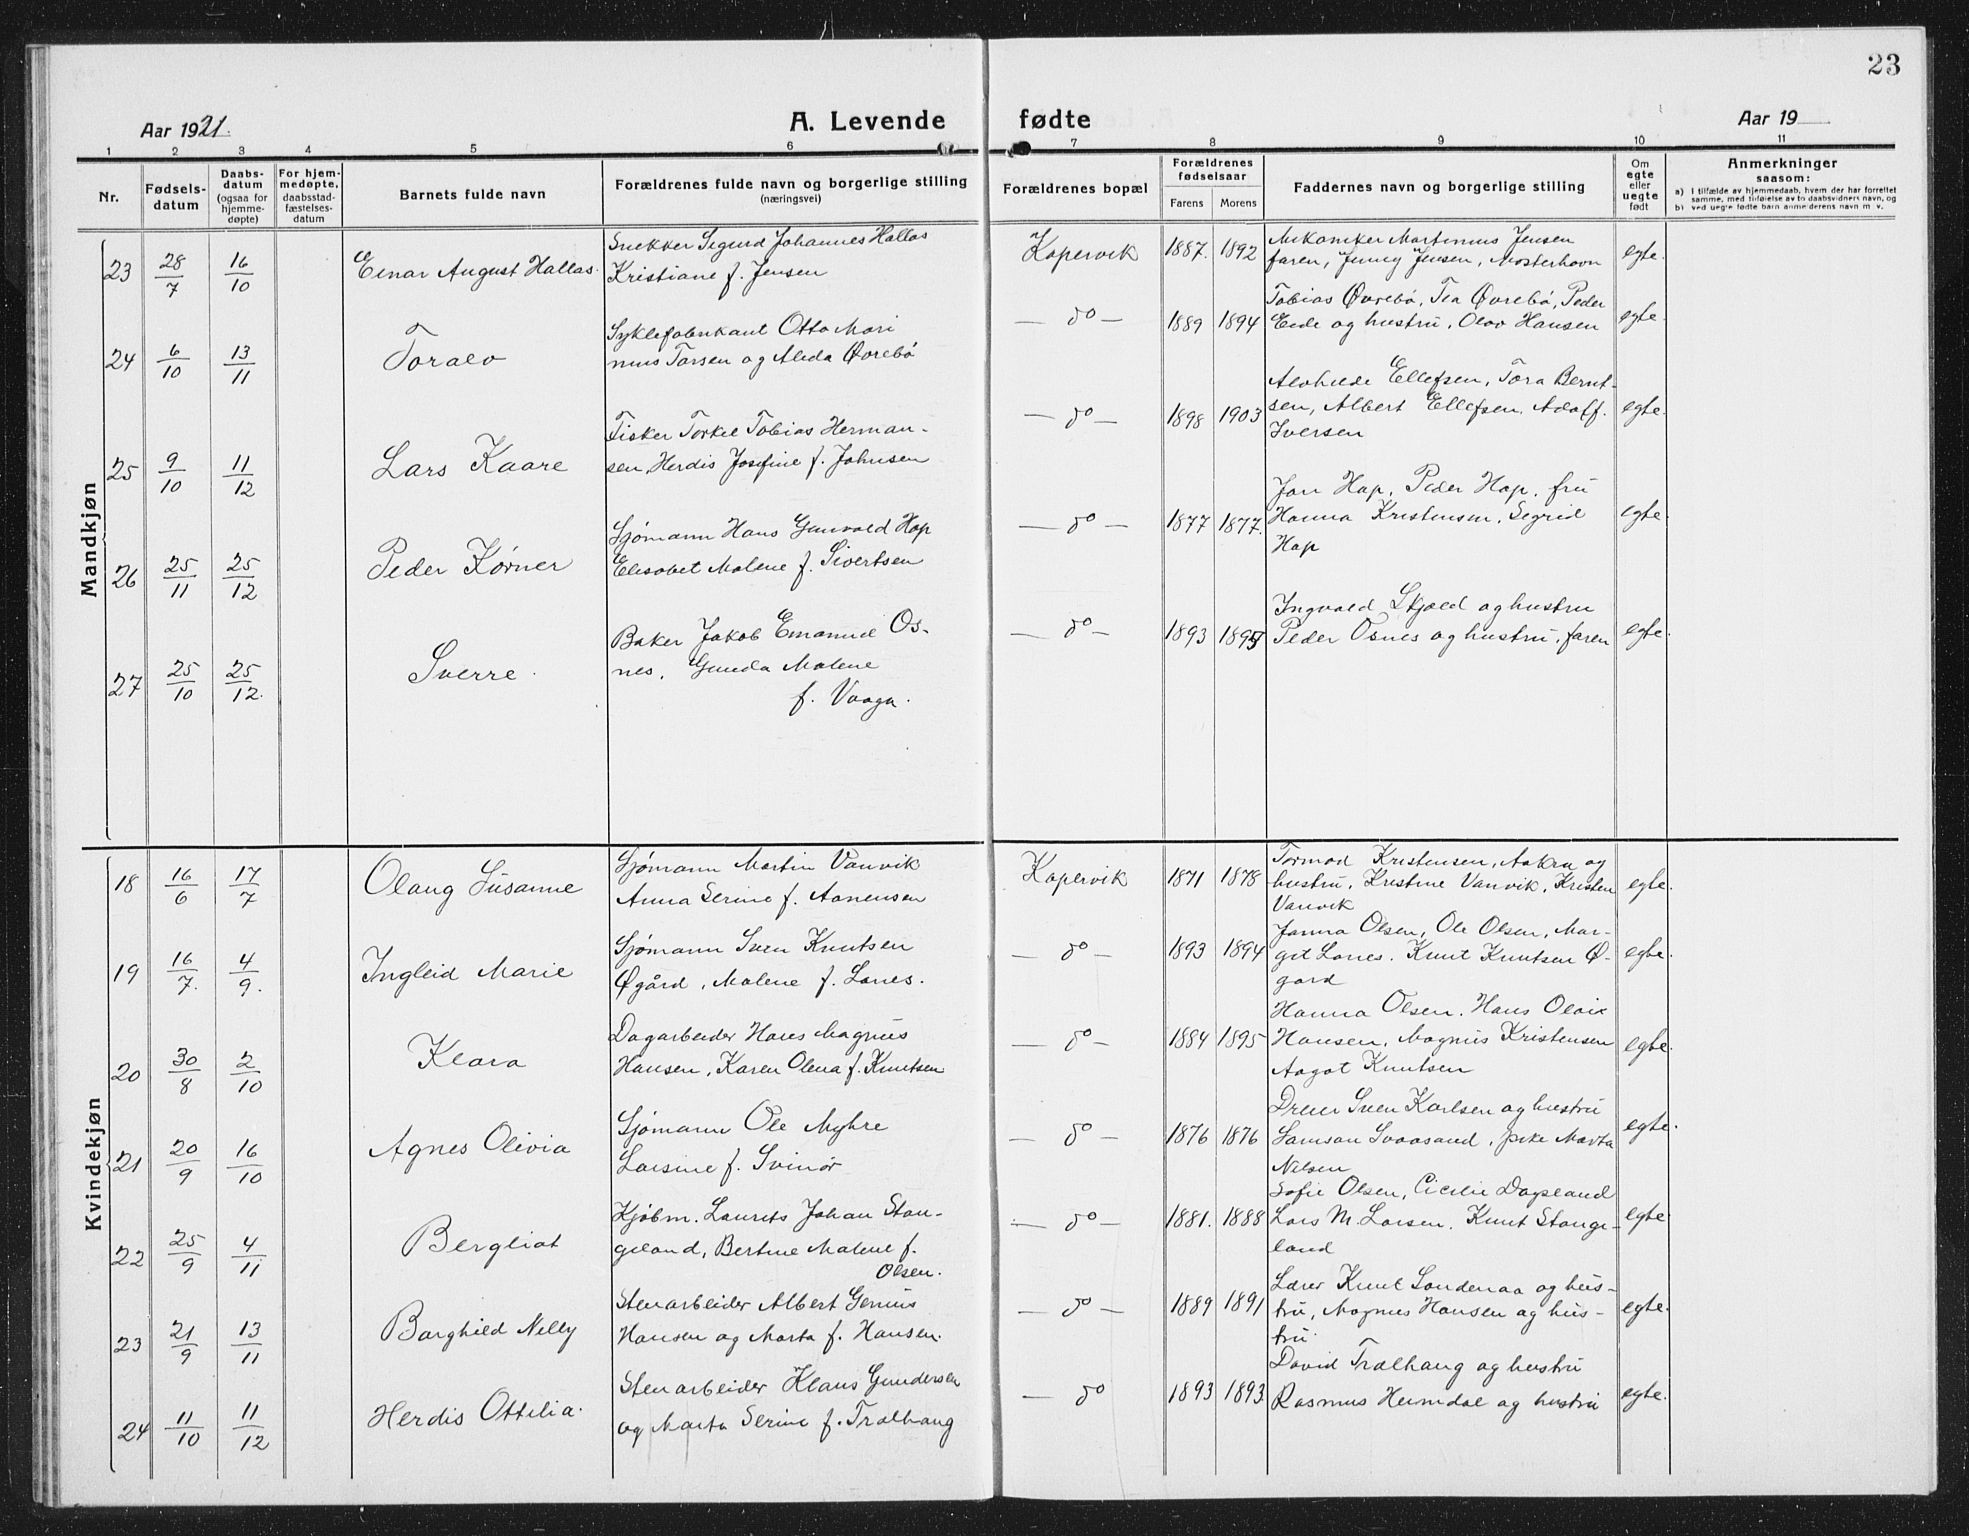 23
Aar 1921.
A. Levende fødte
Aar 19
1 2 3 4 5 6 7 8 9 10 11
Nr.
Fødsels-
datum
Daabs-
datum
(ogsaa for
hjemme-
døpte)
For hjem-
medøpte,
daabsstad-
fæstelses-
datum
Barnets fulde navn
Forældrenes fulde navn og borgerlige stilling
(næringsvei)
Forældrenes bopæl
Forældrenes
fødselsaar
Farens Morens
Faddernes navn og borgerlige stilling
Om
egte
eller
uegte
født
Anmerkninger
saasom:
a) I tilfælde av hjemmedaab, hvem der har forrettet
samme, med tilføielse av to daabsvidners navn, og
b) ved uegte fødte barn anmelderens navn m. v.
Mandkjøn
23 28/7 16/10 Einar August Hallas.
Snekker Sigurd Johannes Hallas
Kristiane f. Jensen
Kopervik 1887. 1892
Mekaniker Martinius Jensen
faren, Jenny Jensen, Mosterhavn
egte.
24 6/10 13/11 Toralv
Syklefabrikant Otto Mari
nius Tarsen og Alida Øvrebø
— do — 1889 1894
Tobias Øvrebø, Tea Øvrebø, Peder
Eide og hustru, Olav Hansen
egte.
25 9/10 11/12 Lars Kaare
Fisker Torkel Tobias Herman-
sen, Herdis Josefine f. Johnsen
— do — 1898 1903
Alvhilde Ellefsen, Tora Bernt-
sen, Albert Ellefsen, Adolf.
Iversen
egte.
26 25/11 25/12 Peder Kørner
Sjømann Hans Gunvald Hop
Elisabet Malene f. Sivertsen
— do — 1877 1877.
Jon Hop, Peder Hop, fru
Hanna Kristensen, Sigrid
Hop
egte.
27 25/10 25/12. Sverre.
Baker Jakob Emanuel Os-
nes, Gunda Malene
f. Vaage.
— do — 1893 1895
Ingvald Skjold og hustru
Peder Osnes og hustru, faren
egte.
Kvindekjøn
18 16/6 17/7 Olaug Susanne
Sjømann Martin Vanvik
Anna Serine f. Aanensen
Kopervik 1871 1878
Tormod Kristensen, Aakra og
hustru, Kristine Vanvik, Kristen
Vanvik
egte.
19 16/7. 4/9. Ingleid Marie
Sjømann Sven Knutsen
Øgård, Malene f. Lones.
— do — 1893 1894
Janna Olsen, Ole Olsen, Mar-
git Lones. Knut Knutsen Ø-
gard
egte.
20 30/8 2/10 Klara
Dagarbeider Hans Magnus
Hansen, Karen Olena f. Knutsen
— do — 1884 1895
Hanna Olsen. Hans Olvie
Hansen, Magnus Kristensen
Aagot Knutsen
egte.
21 20/9 16/10 Agnes Olivia
Sjømann Ole Myhre
Larsine f. Svinør
— do — 1876 1876
Dreier Sven Karlsen og hustru
Samson Svaasand, pike Marta
Nilsen
egte.
22 25/9 4/11 Bergliot
Kjøbm. Laurits Johan Stan-
geland, Bertine Malene f.
Olsen.
— do — 1881. 1888
Sofie Olsen, Cicilie Dagsland
Lars M. Larsen, Knut Stange-
land
egte
23 21/9 13/11 Borghild Nelly
Stenarbeider Albert Genius
Hansen og Marta f. Hansen.
— do — 1889 1891
Lærer Knut Sandenaa og hus-
tru, Magnus Hansen og hus-
tru.
egte.
24 11/10 11/12 Herdis Ottilia.
Stenarbeider Klaus Gundersen
og Marta Serine f. Tralhaug
— do 1893 1893
David Tralhaug og hustru
Rasmus Heimdal og hustru
egte.